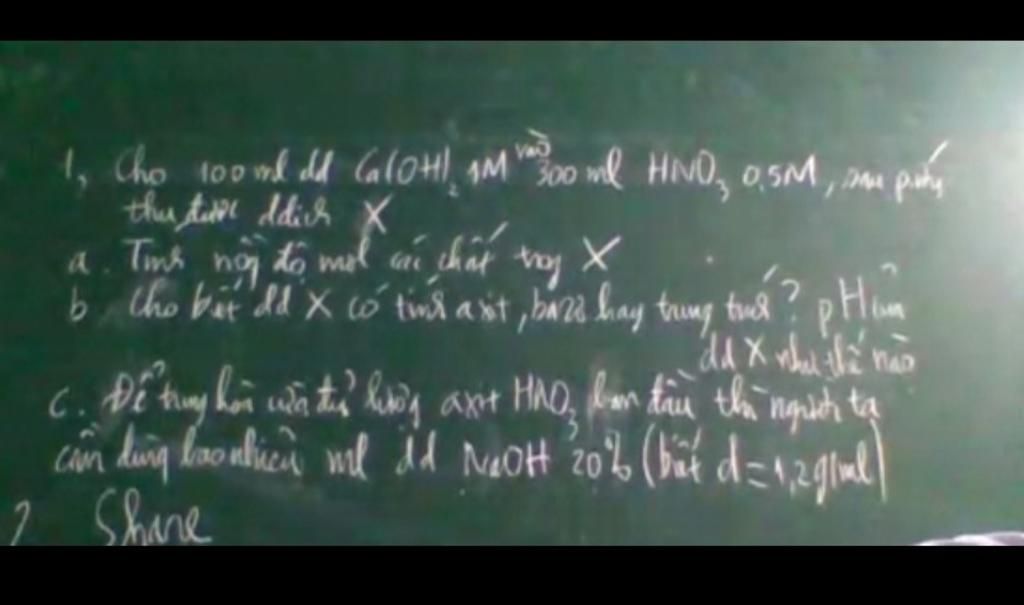 1, Cho 100 ml dd Ca(OH)₂ 1M vào 300 ml HNO₃ 0,5M, sau p.ứng
thu được ddịch X
a. Tính nồng độ mol các chất trong X
b Cho biết dd X có tính axit, bazơ hay trung tính? pH của
dd X như thế nào
c. Để trung hòa vừa đủ lượng axit HNO₃ ban đầu thì người ta
cần dùng bao nhiêu ml dd NaOH 20% (biết d = 1,2g/ml)
2 Share